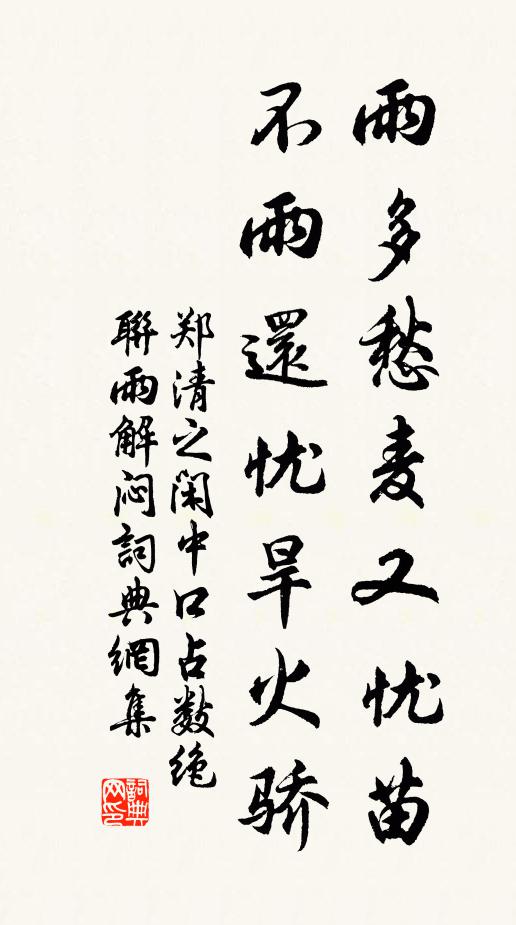 雨多愁麦又忧苗
不雨還忧旱火骄
郑清之闲中口占数绝
聯雨解闷詞典網集
詞典网印